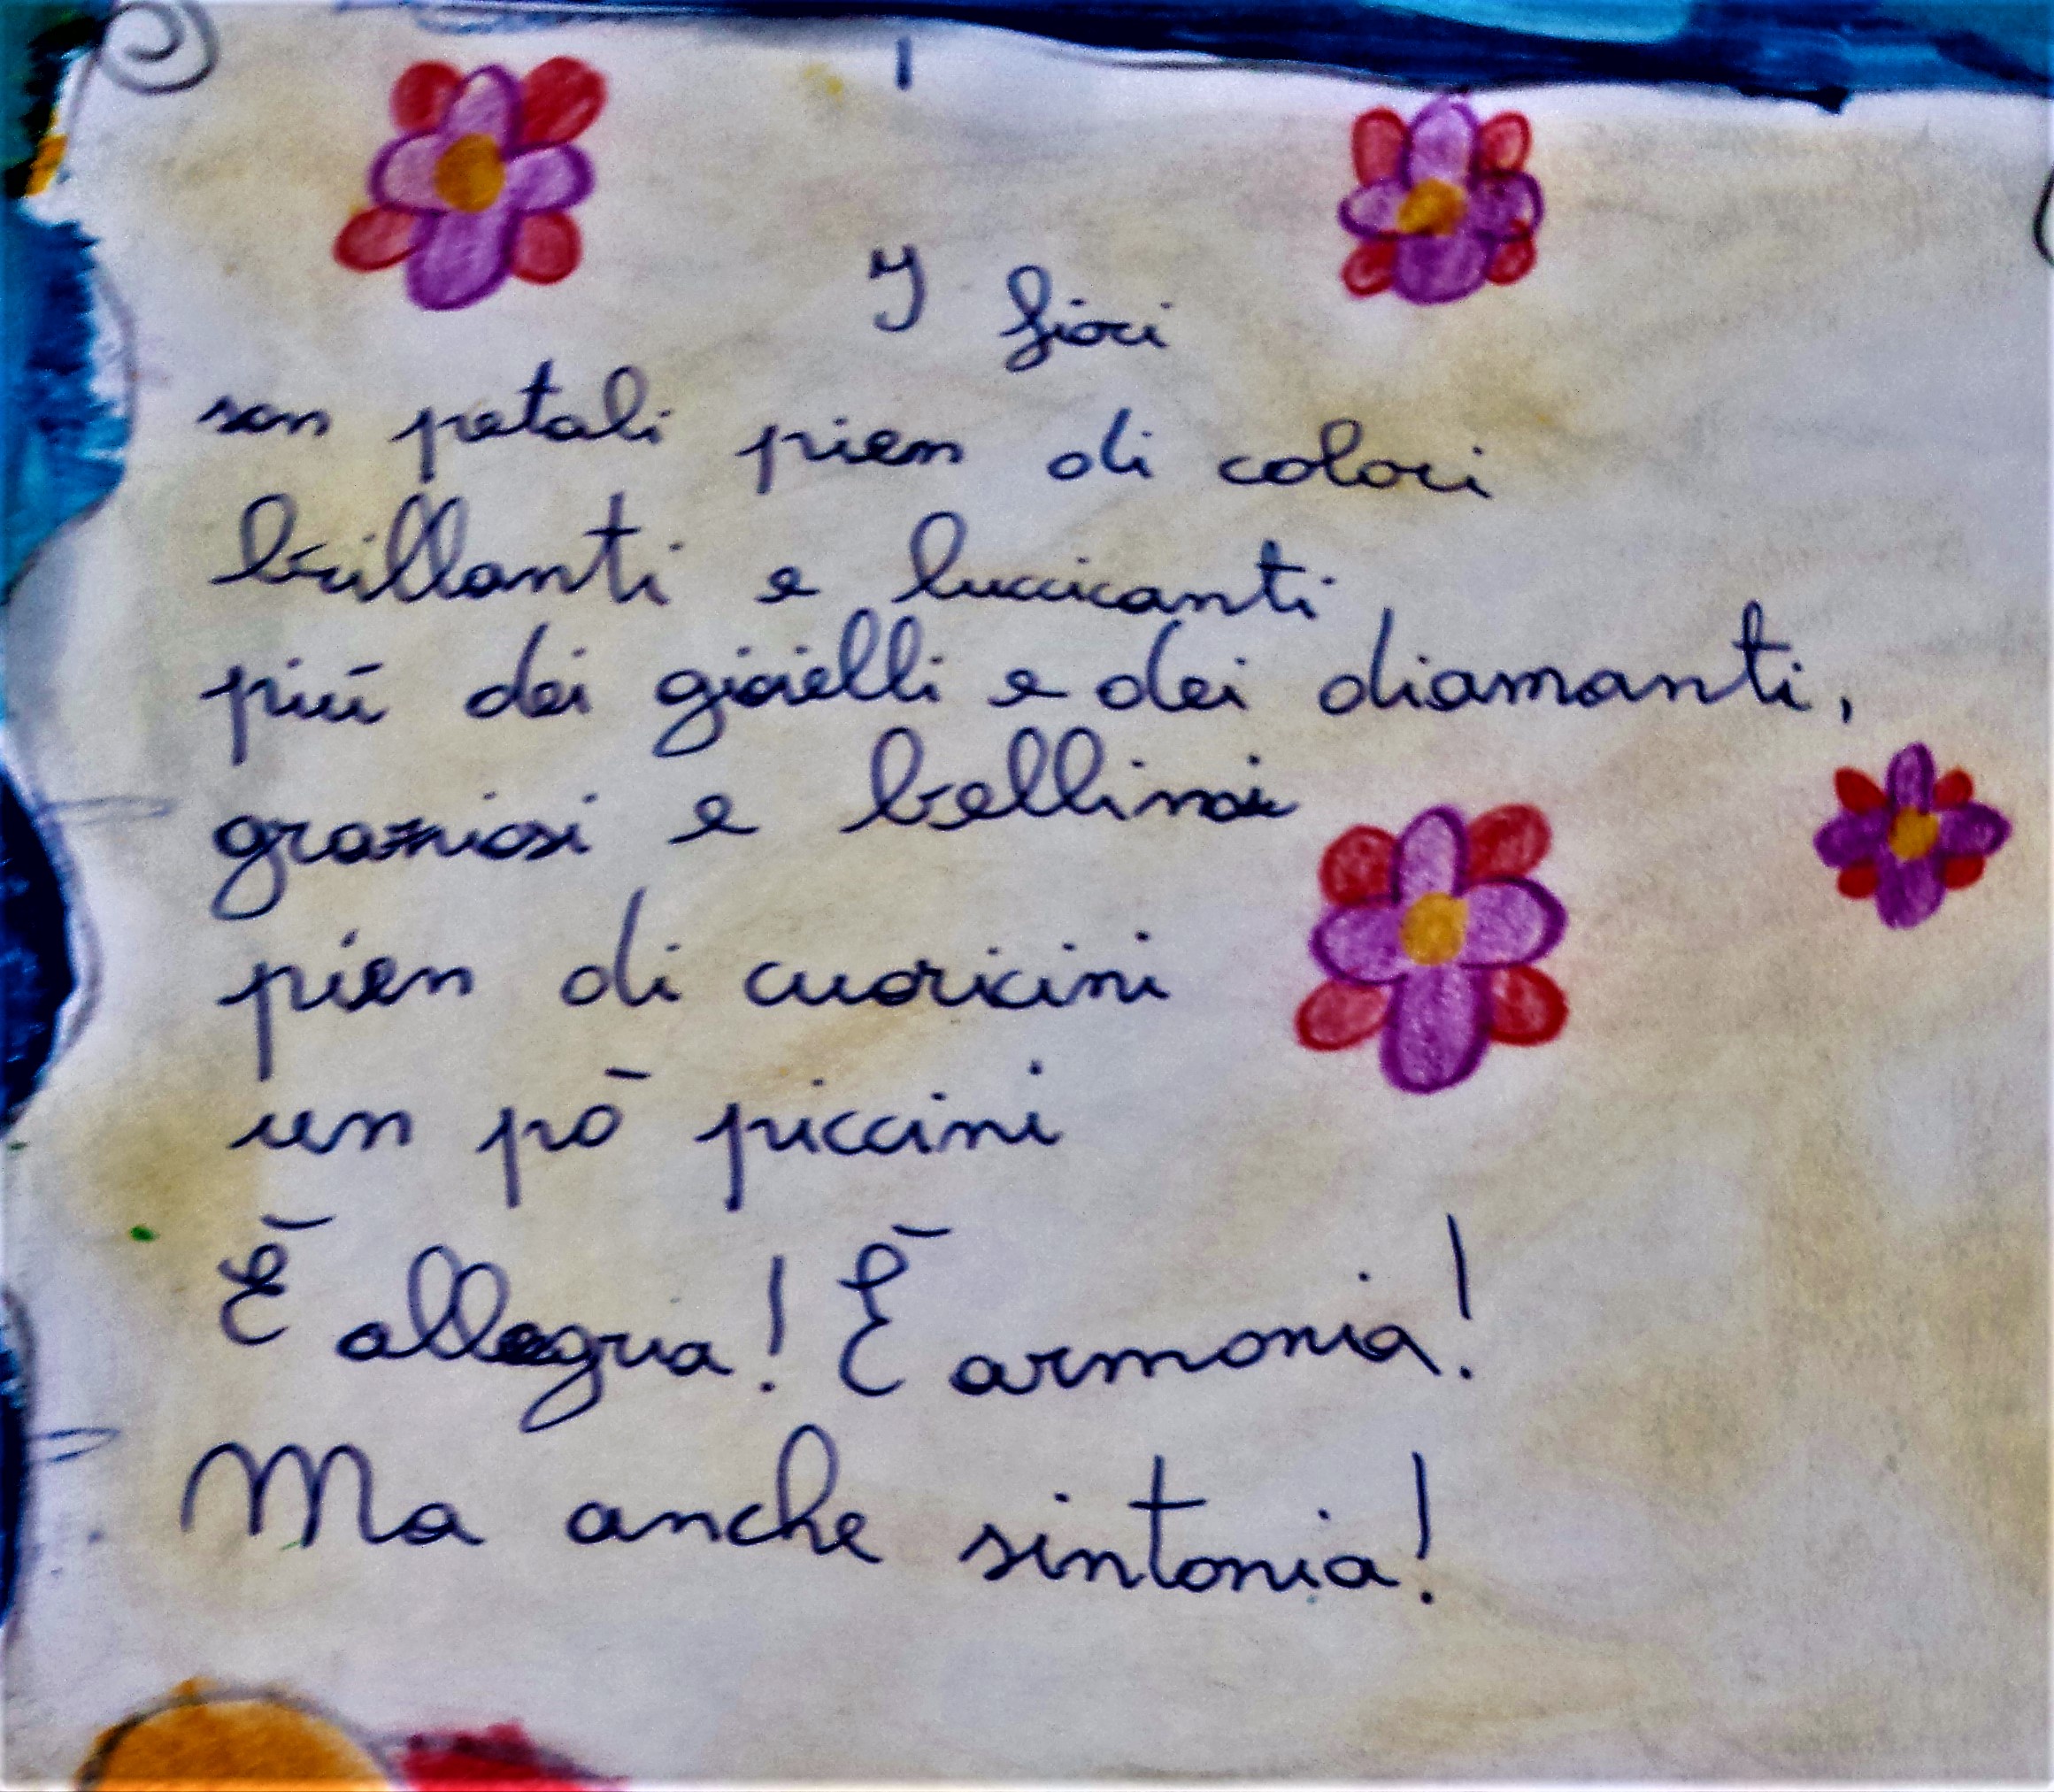 I fiori
son petali pien di colori
brillanti e luccicanti
più dei gioielli e dei diamanti,
graziosi e bellini
pien di cuoricini
un pò piccini
È allegria! È armonia!
Ma anche sintonia!